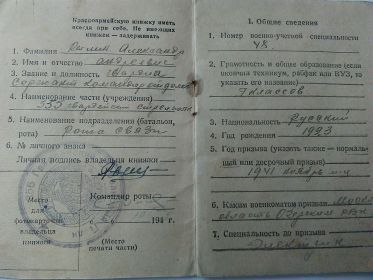 Красноармейскую книжку иметь
всегда при себе. Не имеющих
книжек — задерживать
1. Фамилия Александр
2. Имя и отчество Андреевич
3. Звание и должность гвардии
Сержант командир отделен
4. Наименование части (учреждения)
гвардейский стрелков
5. Наименование подразделения (батальон,
рота) Рота связи
6. № личного знака
Личная подпись владельца книжки
Командир роты
Место
для
фотокарточки
владельца
книжки
194 г.
(Место
печати части)
I. Общие сведения
1. Номер военно-учетной специальности
48
2. Грамотность и общее образование (если
окончил техникум, рабфак или ВУЗ, то
указать его название)
7 классов
3. Национальность Русский
4. Год рождения 1923
5. Год призыва (указать также — нормаль-
ный или досрочный призыв)
1941
6. Каким военкоматом призван
область РВК
7. Специальность до призыва